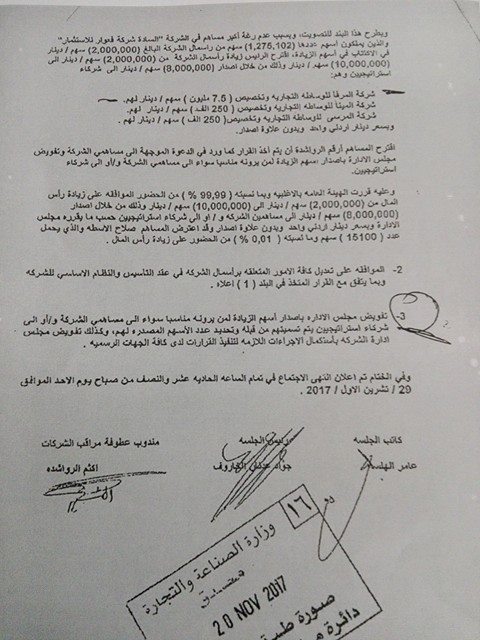 وبطرح هذا البند للتصويت، وبسبب عدم رغبة أكبر مساهم في الشركة "السادة شركة قعوار للاستثمار"
والذين يملكون أسهم عددها (1,275,102) سهم من رأسمال الشركة البالغ (2,000,000) سهم / دينار
في الاكتتاب في أسهم الزيادة، اقترح الرئيس زيادة رأسمال الشركة من (2,000,000) سهم / دينار الى
(10,000,000) سهم / دينار وذلك من خلال اصدار (8,000,000) سهم / دينار الى شركاء
استراتيجيين وهم:
شركة المرفأ للوساطه التجاريه وتخصيص ( 7.5 مليون ) سهم / دينار لهم.
شركة المينا للوساطه التجاريه وتخصيص ( 250 الف ) سهم / دينار لهم.
شركة المرسى للوساطه التجاريه وتخصيص( 250 الف ) سهم / دينار لهم .
وبسعر دينار اردني واحد وبدون علاوة اصدار.
اقترح المساهم أرقم الرواشدة أن يتم أخذ القرار كما ورد في الدعوة الموجهة الى مساهمي الشركة وتفويض
مجلس الادارة باصدار أسهم الزيادة لمن يرونه مناسبا سواء الى مساهمي الشركة و/أو الى شركاء
استراتيجيين.
وعليه قررت الهيئة العامه بالاغلبيه وبما نسبته ( 99,99 % ) من الحضور الموافقه على زيادة رأس
المال من (2,000,000) سهم / دينار الى (10,000,000) سهم / دينار وذلك من خلال اصدار
(8,000,000) سهم / دينار الى مساهمين الشركه و / او الى شركاء استراتيجيين حسب ما يقرره مجلس
الادارة وبسعر دينار اردني واحد وبدون علاوة اصدار وقد اعترض المساهم صلاح الاسطه والذي يحمل
عدد ( 15100 ) سهم وما نسبته ( 0,01 % ) من الحضور على زيادة رأس المال .
2- الموافقه على تعديل كافة الامور المتعلقه برأسمال الشركة في عقد التأسيس والنظام الاساسي للشركه
وبما يتفق مع القرار المتخذ في البند ( 1 ) اعلاه .
3- تفويض مجلس الاداره باصدار أسهم الزيادة لمن يرونه مناسبا سواء الى مساهمي الشركة و/أو الى
شركاء استراتيجيين يتم تسميتهم من قبله وتحديد عدد الأسهم المصدره لهم، وكذلك تفويض مجلس
ادارة الشركه بأستكمال الاجراءات اللازمه لتنفيذ القرارات لدى كافة الجهات الرسميه .
وفي الختام تم اعلان انتهى الاجتماع في تمام الساعه الحاديه عشر والنصف من صباح يوم الاحد الموافق
29 / تشرين الاول / 2017 .
كاتب الجلسه رئيس الجلسه مندوب عطوفة مراقب الشركات
عامر الهلسه جواد عدنان الفاروقي اكثم الرواشده
١٦
وزارة الصناعة والتجارة
20 NOV 2017
صورة
دائرة